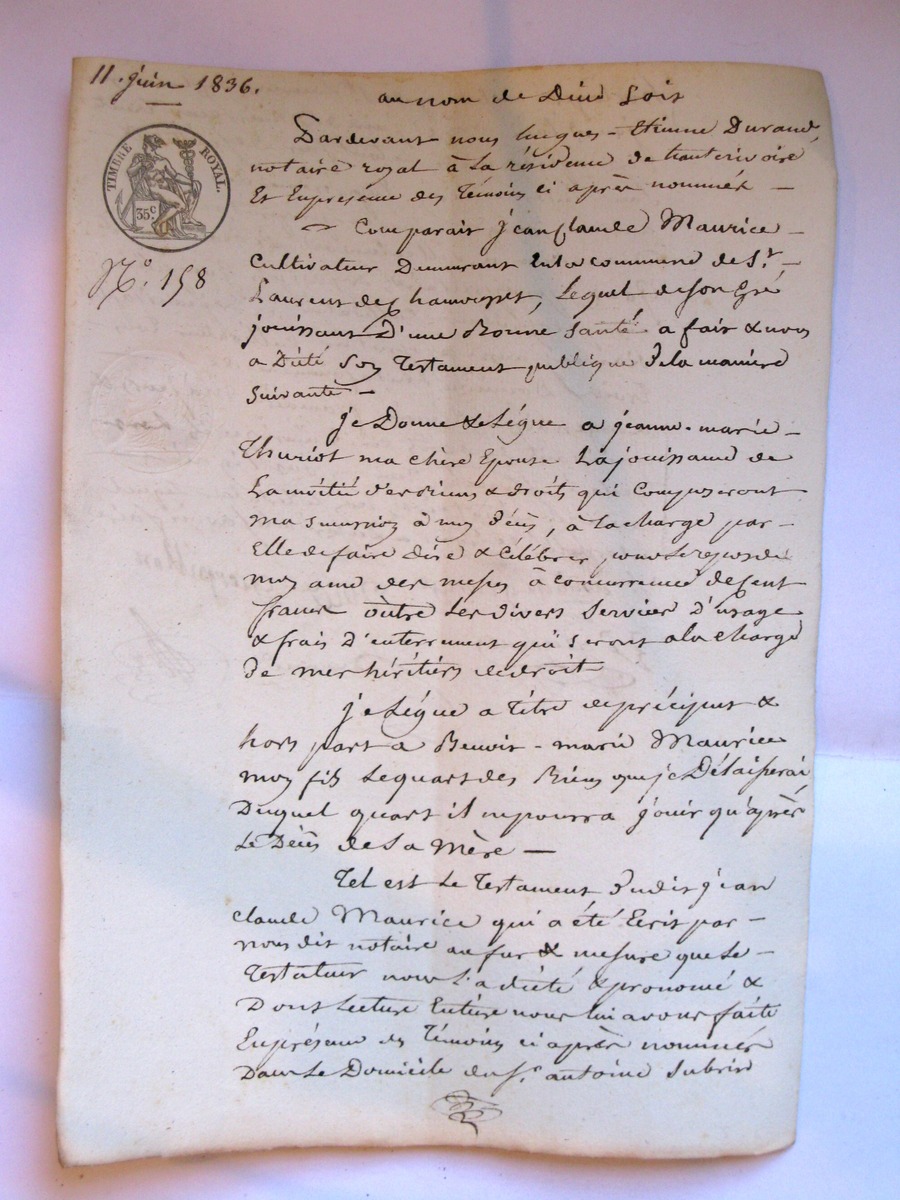 11. juin 1836.
au nom de Dieu Soit
TIMBRE ROYAL.
35c
No. 158
Pardevant nous hugues-Etienne Durand,
notaire royal à La résidence de hauterivoire
Et Enprésence des Témoins ci après nommés —
Comparait jean Claude Maurice —
Cultivateur Demeurant Enla commune de St. —
Laurent de Chamousset, Lequel de son Gré
jouissant D'une Bonne Santé a fait & nous
a Dicté Son Testament publique de la manière
suivante —
je Donne & Légue a jeanne-marie —
Thuriot ma chère Epouse La jouissance de
La moitié des Biens & droits qui Composeront
ma Succession à mon décès, à La charge par —
Elle de faire dire & Célébrer pour Le repos de
mon ame des messes à concurrence de Cent
francs outre Les divers Services D'usage
& frais D'enterrement qui Seront a la charge
de mes héritiers de droit
je Légue a Titre de préciput &
hors part a Benoit-marie Maurice
mon fils Le quart des Biens que je Délaisserai,
Duquel quart il ne pourra jouir qu'après
Le Décès de Sa Mère —
Tel est Le Testament dudit jean
claude Maurice qui a été Ecrit par —
nous dit notaire au fur & mesure que Le —
Testateur nous L'a dicté & prononcé &
Dont Lecture Entière nous lui avons faite
En présence des Témoins ci après nommés
Dans Le Domicile du Sr. antoine Subrin